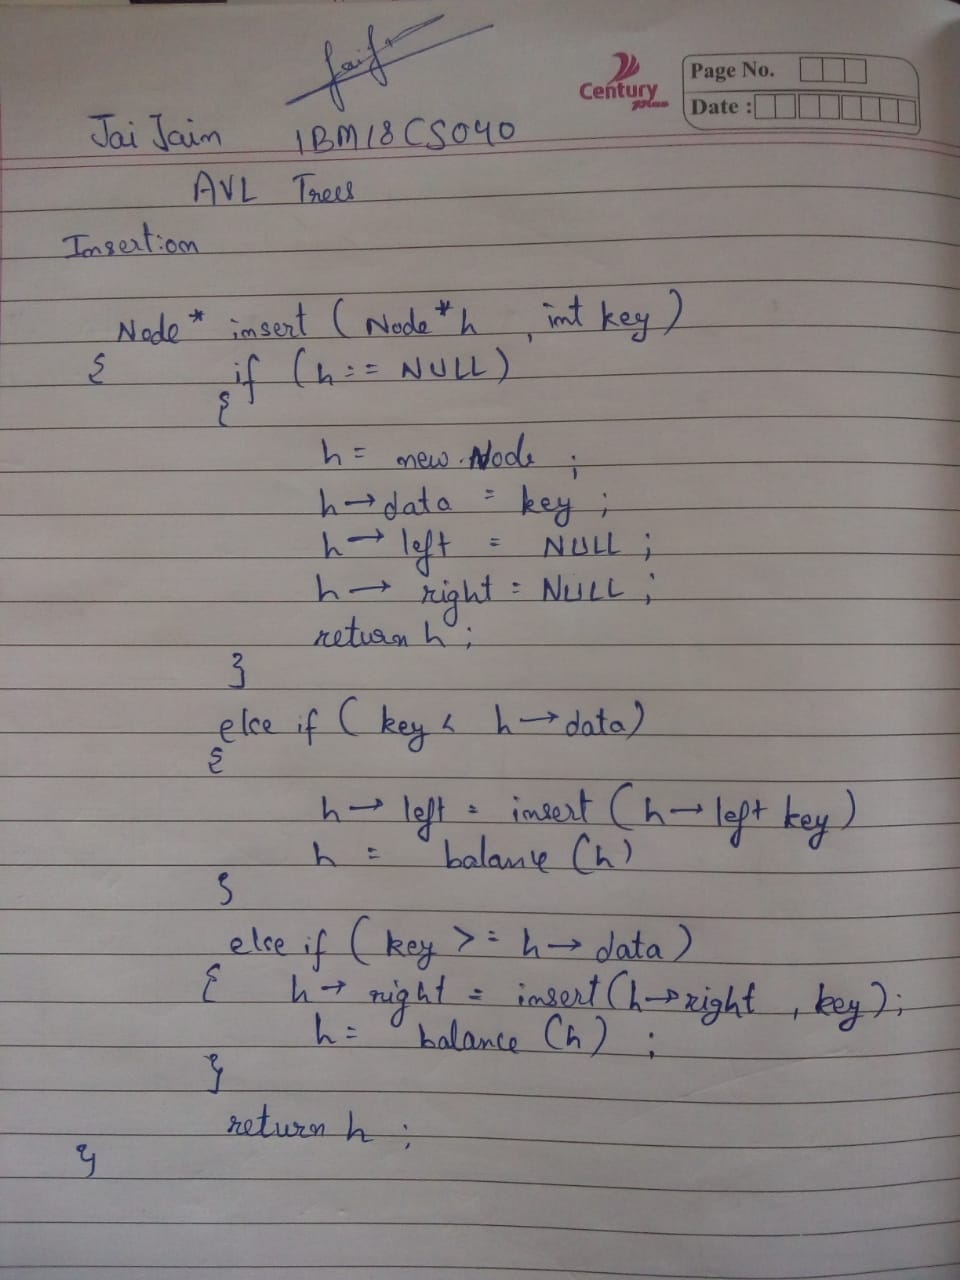 Century
Page No.
Date :
Jai Jain 1BM18CS040
AVL Trees
Insertion
Node* insert (Node*h , int key)
{ if (h == NULL)
{
h = new Node ;
h→data = key ;
h→ left = NULL ;
h→ right = NULL ;
return h ;
}
else if ( key < h→data)
{
h→ left = insert (h→ left key)
h = balance (h)
}
else if ( key >= h→ data)
{ h→ right = insert(h→right , key);
h = balance (h) ;
}
return h ;
}